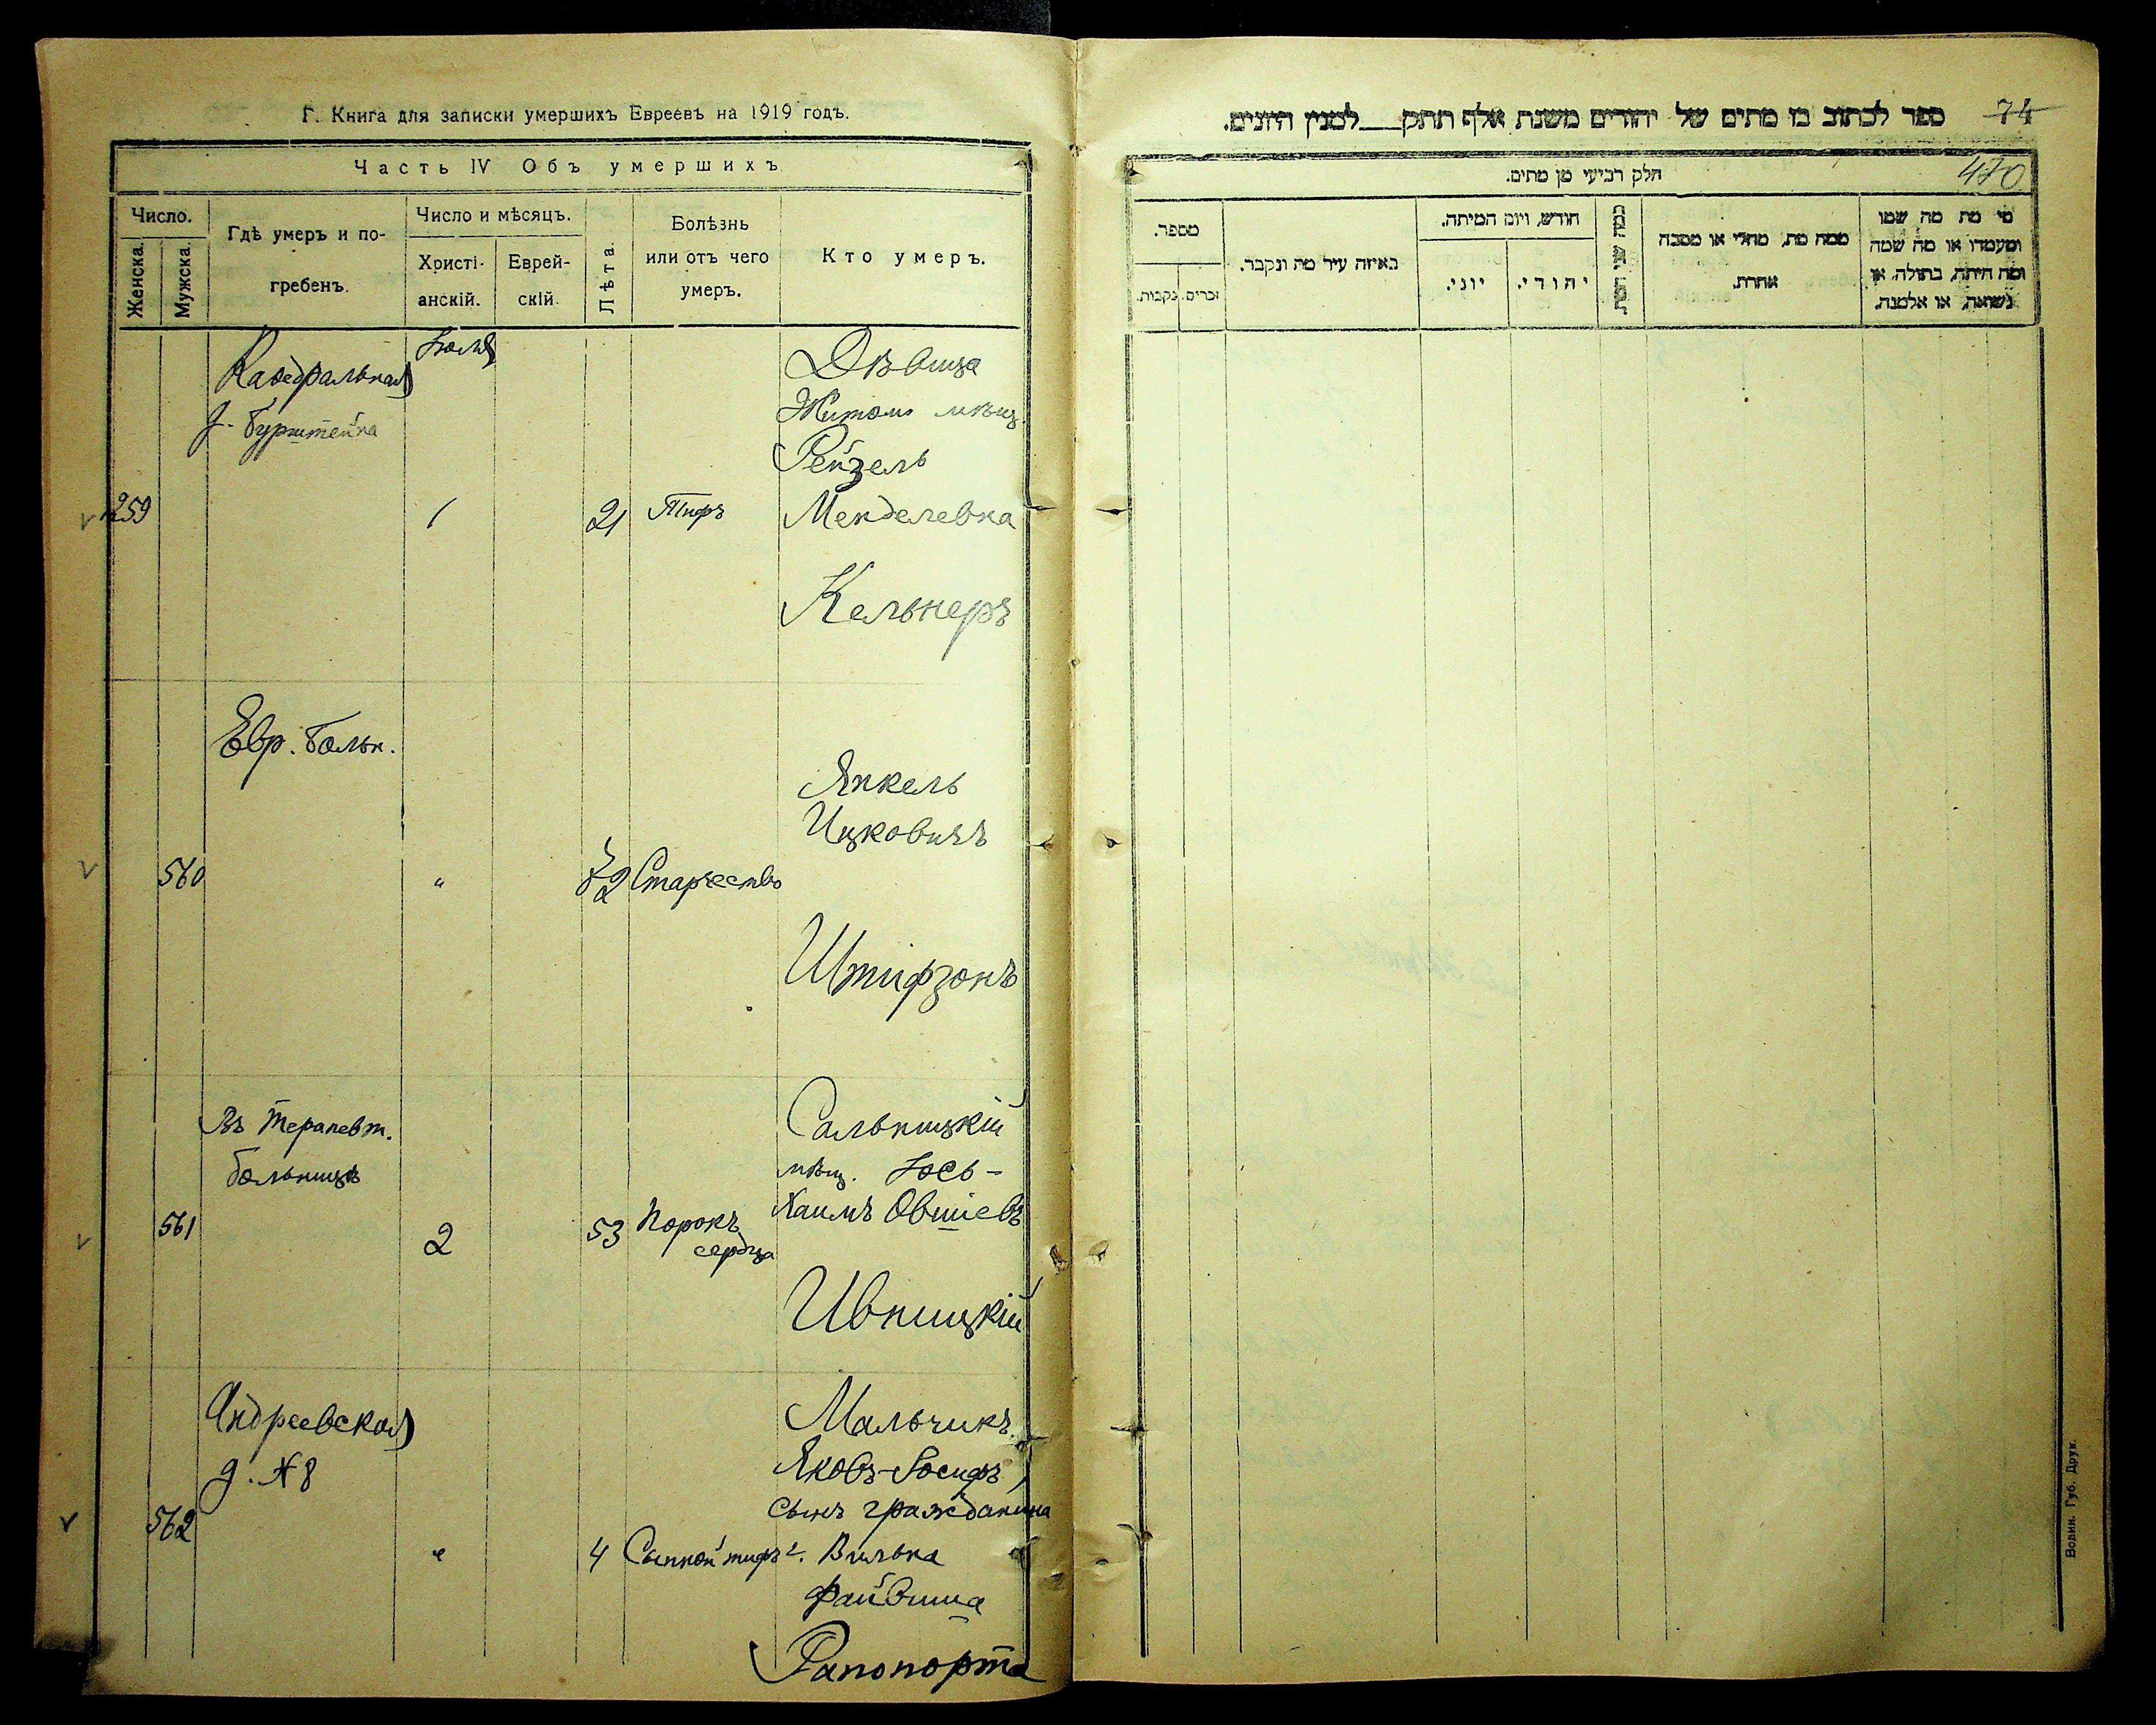 Г. Книга для записки умершихъ Евреевъ на 1919 годъ.
Часть IV Объ умершихъ
Число.
Женска.
Мужска.
Гдѣ умеръ и по-
гребенъ.
Число и мѣсяцъ.
Христі-
анскій.
Еврей-
скій.
Лѣта.
Болѣзнь
или отъ чего
умеръ.
Кто умеръ.
Кафедральная
д. Бурштейна
Іюля
259
1
21
Тифъ
Дѣвица
Житом. мѣщ.
Рейзель
Менделевна
Кельнеръ
Евр. больн.
560
"
72
Старчество
Янкель
Ицковичъ
Штифзонъ
Въ терапевт.
больницѣ
561
2
53
Порокъ
сердца
Сальницкій
мѣщ. Іось-
Хаимъ Овшіевъ
Ивницкій
Андреевская
д. №8
562
"
4
Сыпной тифъ
Мальчикъ
Яковъ-Іосифъ,
сынъ гражданина
г. Вильна
Файвиша
Рапопорта
74
ספר לכתוב בו מתים של יהודים משנת אלף תתק___ למנין היונים.
470
חלק רביעי מן מתים.
מי מת מה שמו
ומעמדו או מה שמה
ומה היתה, בתולה, או
נשואה, או אלמנה.
ממה מת, מחלי או מסבה
אחרת.
חודש, ויום המיתה.
יהודי.
יוני.
באיזה עיר מת ונקבר.
מספר.
זכרים.
נקבות.
Волин. Губ. Друк.